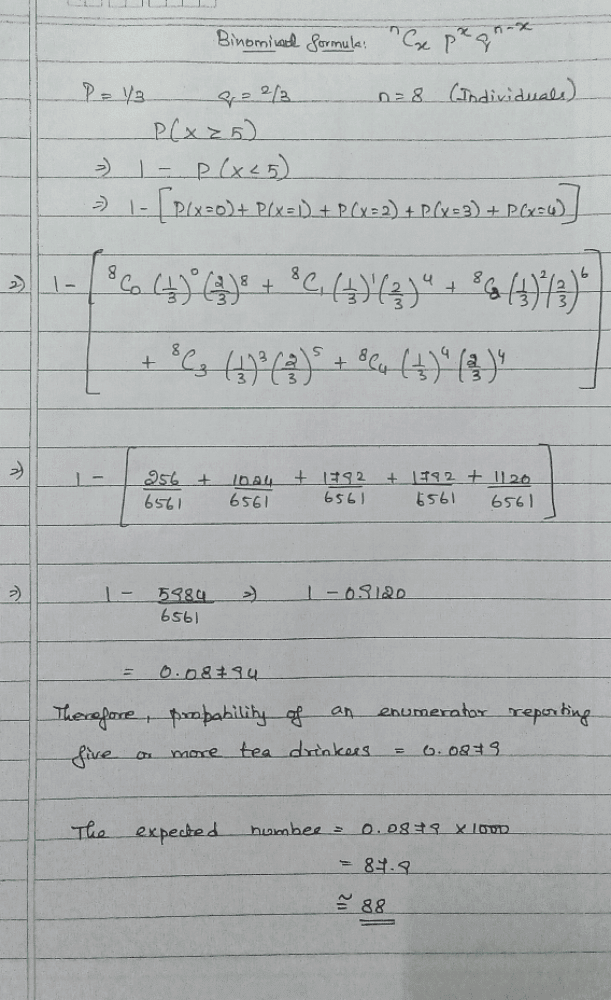 Binomial formula: ⁿCₓ pˣ qⁿ⁻ˣ
P = 1/3 q = 2/3 n = 8 (Individuals)
P(x ≥ 5)
⇒ 1 - P(x < 5)
⇒ 1 - [P(x=0) + P(x=1) + P(x=2) + P(x=3) + P(x=4)]
⇒ 1 - [⁸C₀ (1/3)⁰ (2/3)⁸ + ⁸C₁ (1/3)¹ (2/3)⁴ + ⁸C₂ (1/3)² (2/3)⁶
+ ⁸C₃ (1/3)³ (2/3)⁵ + ⁸C₄ (1/3)⁴ (2/3)⁴]
⇒ 1 - [256/6561 + 1024/6561 + 1792/6561 + 1792/6561 + 1120/6561]
⇒ 1 - 5984/6561 ⇒ 1 - 0.9120
= 0.08794
Therefore, probability of an enumerator reporting
five or more tea drinkers = 0.0879
The expected number = 0.0879 × 1000
= 87.9
≅ 88